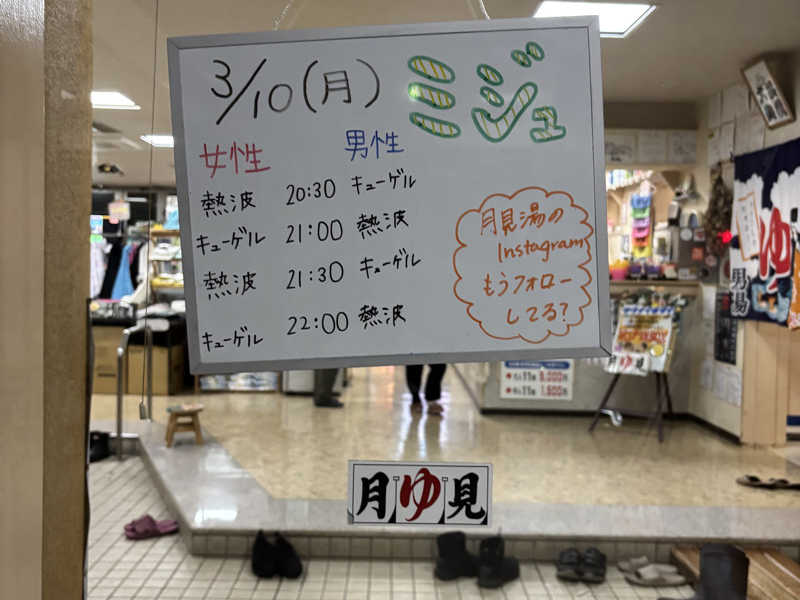 3/10(月) ミジュ
女性 男性
熱波 20:30 キューゲル
キューゲル 21:00 熱波
熱波 21:30 キューゲル
キューゲル 22:00 熱波
月見湯の
Instagram
もうフォロー
してる?
月ゆ見
ゆ
男湯
ゆ見